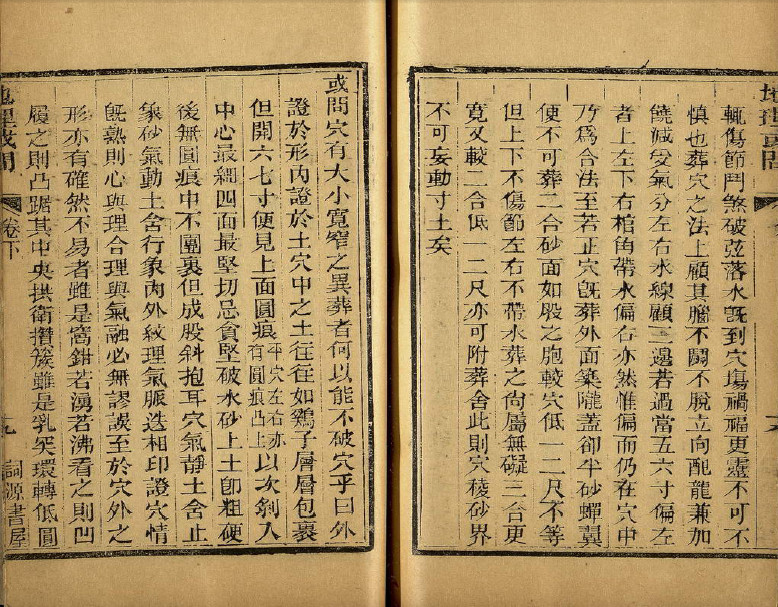 輒傷節鬥煞破弦落水旣到穴塲禍福更靈不可不
慎也葬穴之法上顧其腦不鬭不脫立向配龍兼加
饒減受氣分左右水線顧三邊若過當五六寸偏左
者上左下右棺角帶水偏右亦然惟偏而仍在穴中
乃爲合法至若正穴旣葬外面築隴蓋卻半砂蟬翼
便不可葬二合砂面如股之胞較穴低一二尺不等
但上下不傷節左右不帶水葬之尙屬無礙三合更
寬又較二合低一二尺亦可附葬舍此則穴稜砂界
不可妄動寸土矣
或問穴有大小寬窄之異葬者何以能不破穴乎曰外
證於形內證於土穴中之土往往如鷄子層層包裹
但開六七寸便見上面圓痕平穴左右亦有圓痕凸上以次剜入
中心最細四面最堅切忌貪堅破水砂上土卽粗硬
後無圓痕中不圍裹但成股斜抱耳穴氣靜土舍止
象砂氣動土舍行象內外紋理氣脈迭相印證穴情
旣熟則心與理合理與氣融必無謬誤至於穴外之
形亦有確然不易者雖是窩鉗若湧若沸看之則凹
履之則凸踞其中央拱衛攢簇雖是乳突環轉低圓
地理或問
卷下
九
詞源書屋